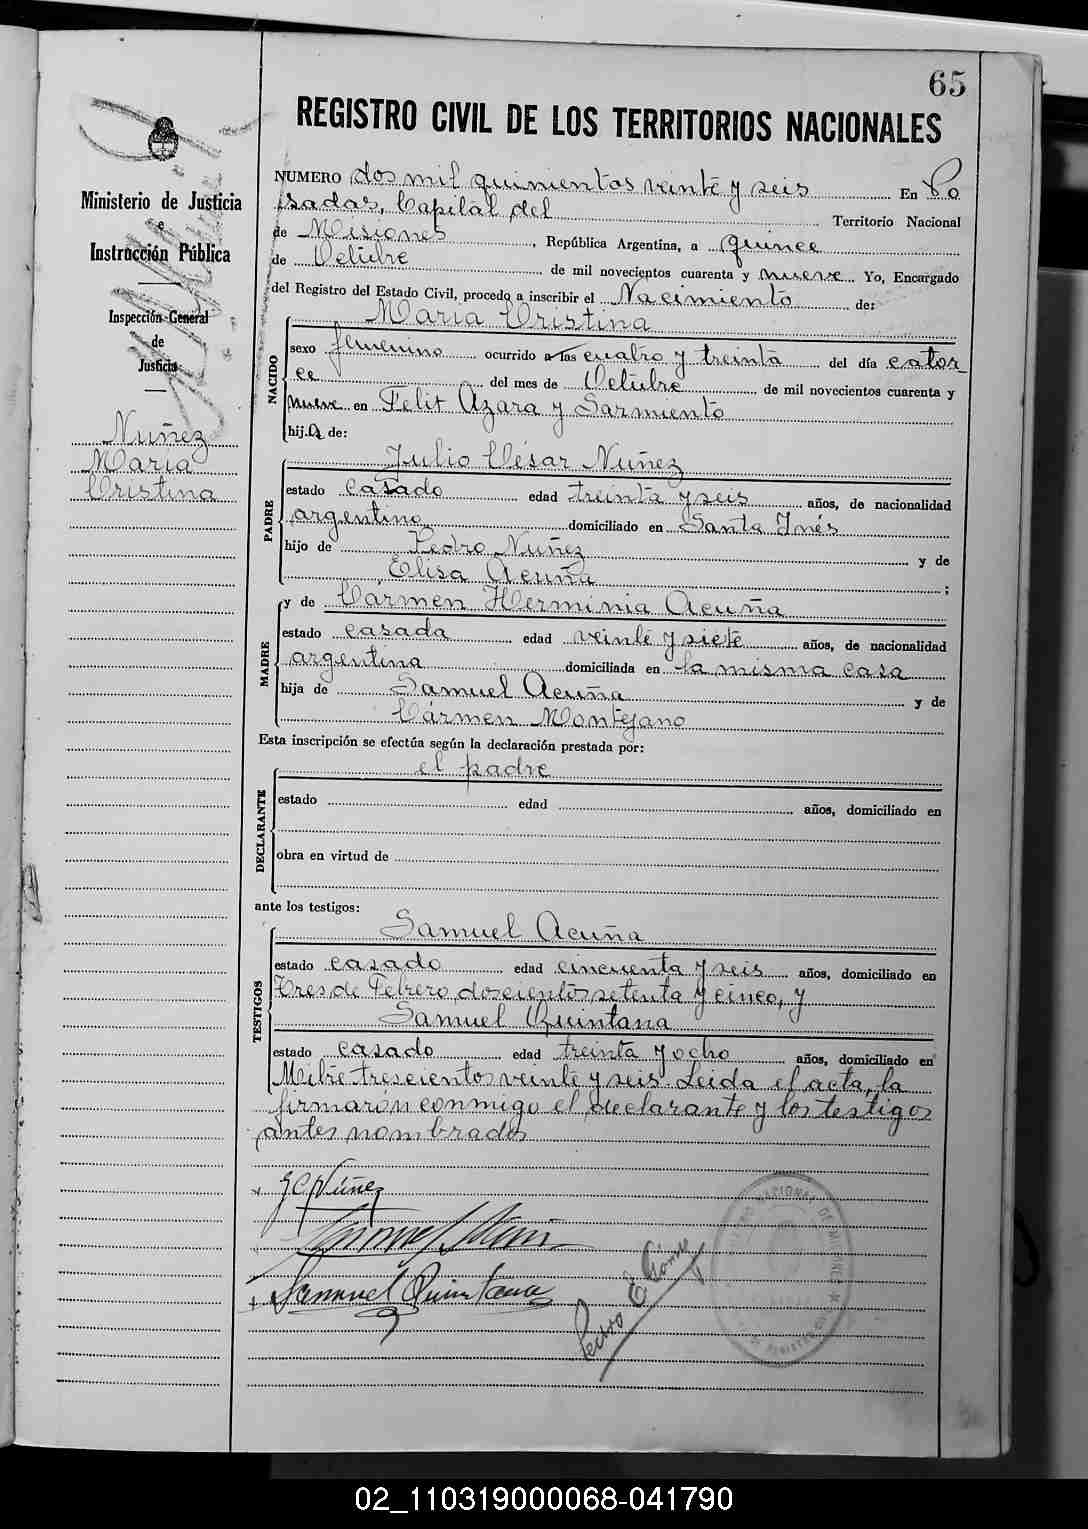 65
REGISTRO CIVIL DE LOS TERRITORIOS NACIONALES
Ministerio de Justicia
e
Instrucción Pública
Inspección General
de
Justicia
Nuñez
Maria
Cristina
NUMERO dos mil quinientos veinte y seis En Po
sadas, Capital del Territorio Nacional
de Misiones, República Argentina, a quince
de Octubre de mil novecientos cuarenta y nueve Yo, Encargado
del Registro del Estado Civil, procedo a inscribir el Nacimiento de:
NACIDO
Maria Cristina
sexo femenino ocurrido a las cuatro y treinta del día cator_
ce del mes de Octubre de mil novecientos cuarenta y
nueve en Felix Azara y Sarmiento
hij.a de:
PADRE
Julio César Nuñez
estado casado edad treinta y seis años, de nacionalidad
argentino domiciliado en Santa Inés
hijo de Pedro Nuñez y de
Elisa Acuña;
MADRE
y de Cármen Herminia Acuña
estado casada edad veinte y siete años, de nacionalidad
argentina domiciliada en la misma casa
hija de Samuel Acuña y de
Cármen Montejano
Esta inscripción se efectúa según la declaración prestada por:
DECLARANTE
el padre
estado edad años, domiciliado en
obra en virtud de
ante los testigos:
TESTIGOS
Samuel Acuña
estado casado edad cincuenta y seis años, domiciliado en
Tres de Febrero doscientos setenta y cinco, y
Samuel Quintana
estado casado edad treinta y ocho años, domiciliado en
Mitre trescientos veinte y seis. Leida el acta, la
firmarón conmigo el declarante y los testigos
antes nombrados
J C Núñez
Samuel Quintana
Pedro E Gómez
02_110319000068-041790